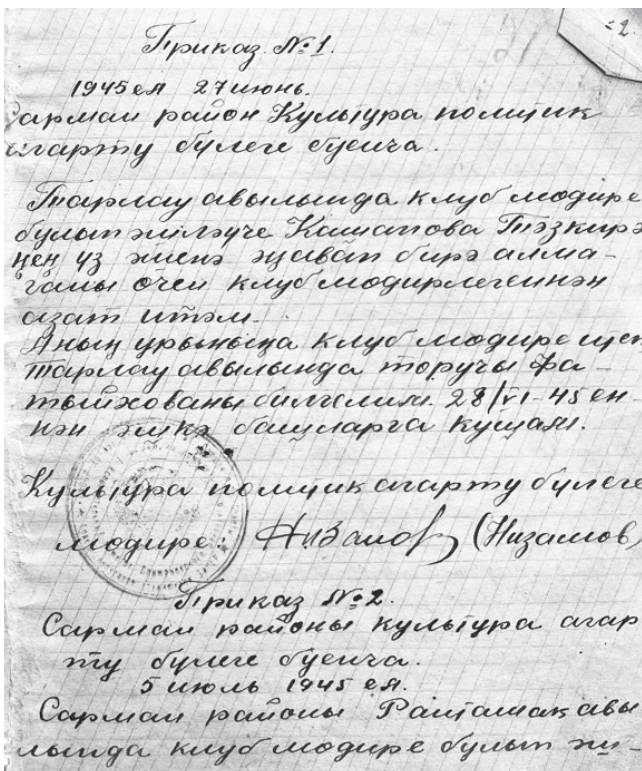 -2.
Приказ №1.
1945 ел 27 июнь.
Сарман район Культура политик
агарту бүлеге буенча.
Тарлау авылында клуб модире
булып эшләүче Кашапова Тәзкирә
нең үз эшенә җавап бирә алма-
ганы өчен клуб модирлегеннән
азат итәм.
Аның урынына клуб модире итеп
Тарлау авылында торучы Фа-
тыйхованы билгелим 28/VI-45 ен
нән эшкә башларга кушам.
Культура политик агарту бүлеге
модире - Низамов (Низамов)
Приказ №2.
Сарман районы культура агар
ту бүлеге буенча.
5 июль 1945 ел.
Сарман районы Рангазак авы
лында клуб модире булып эш-